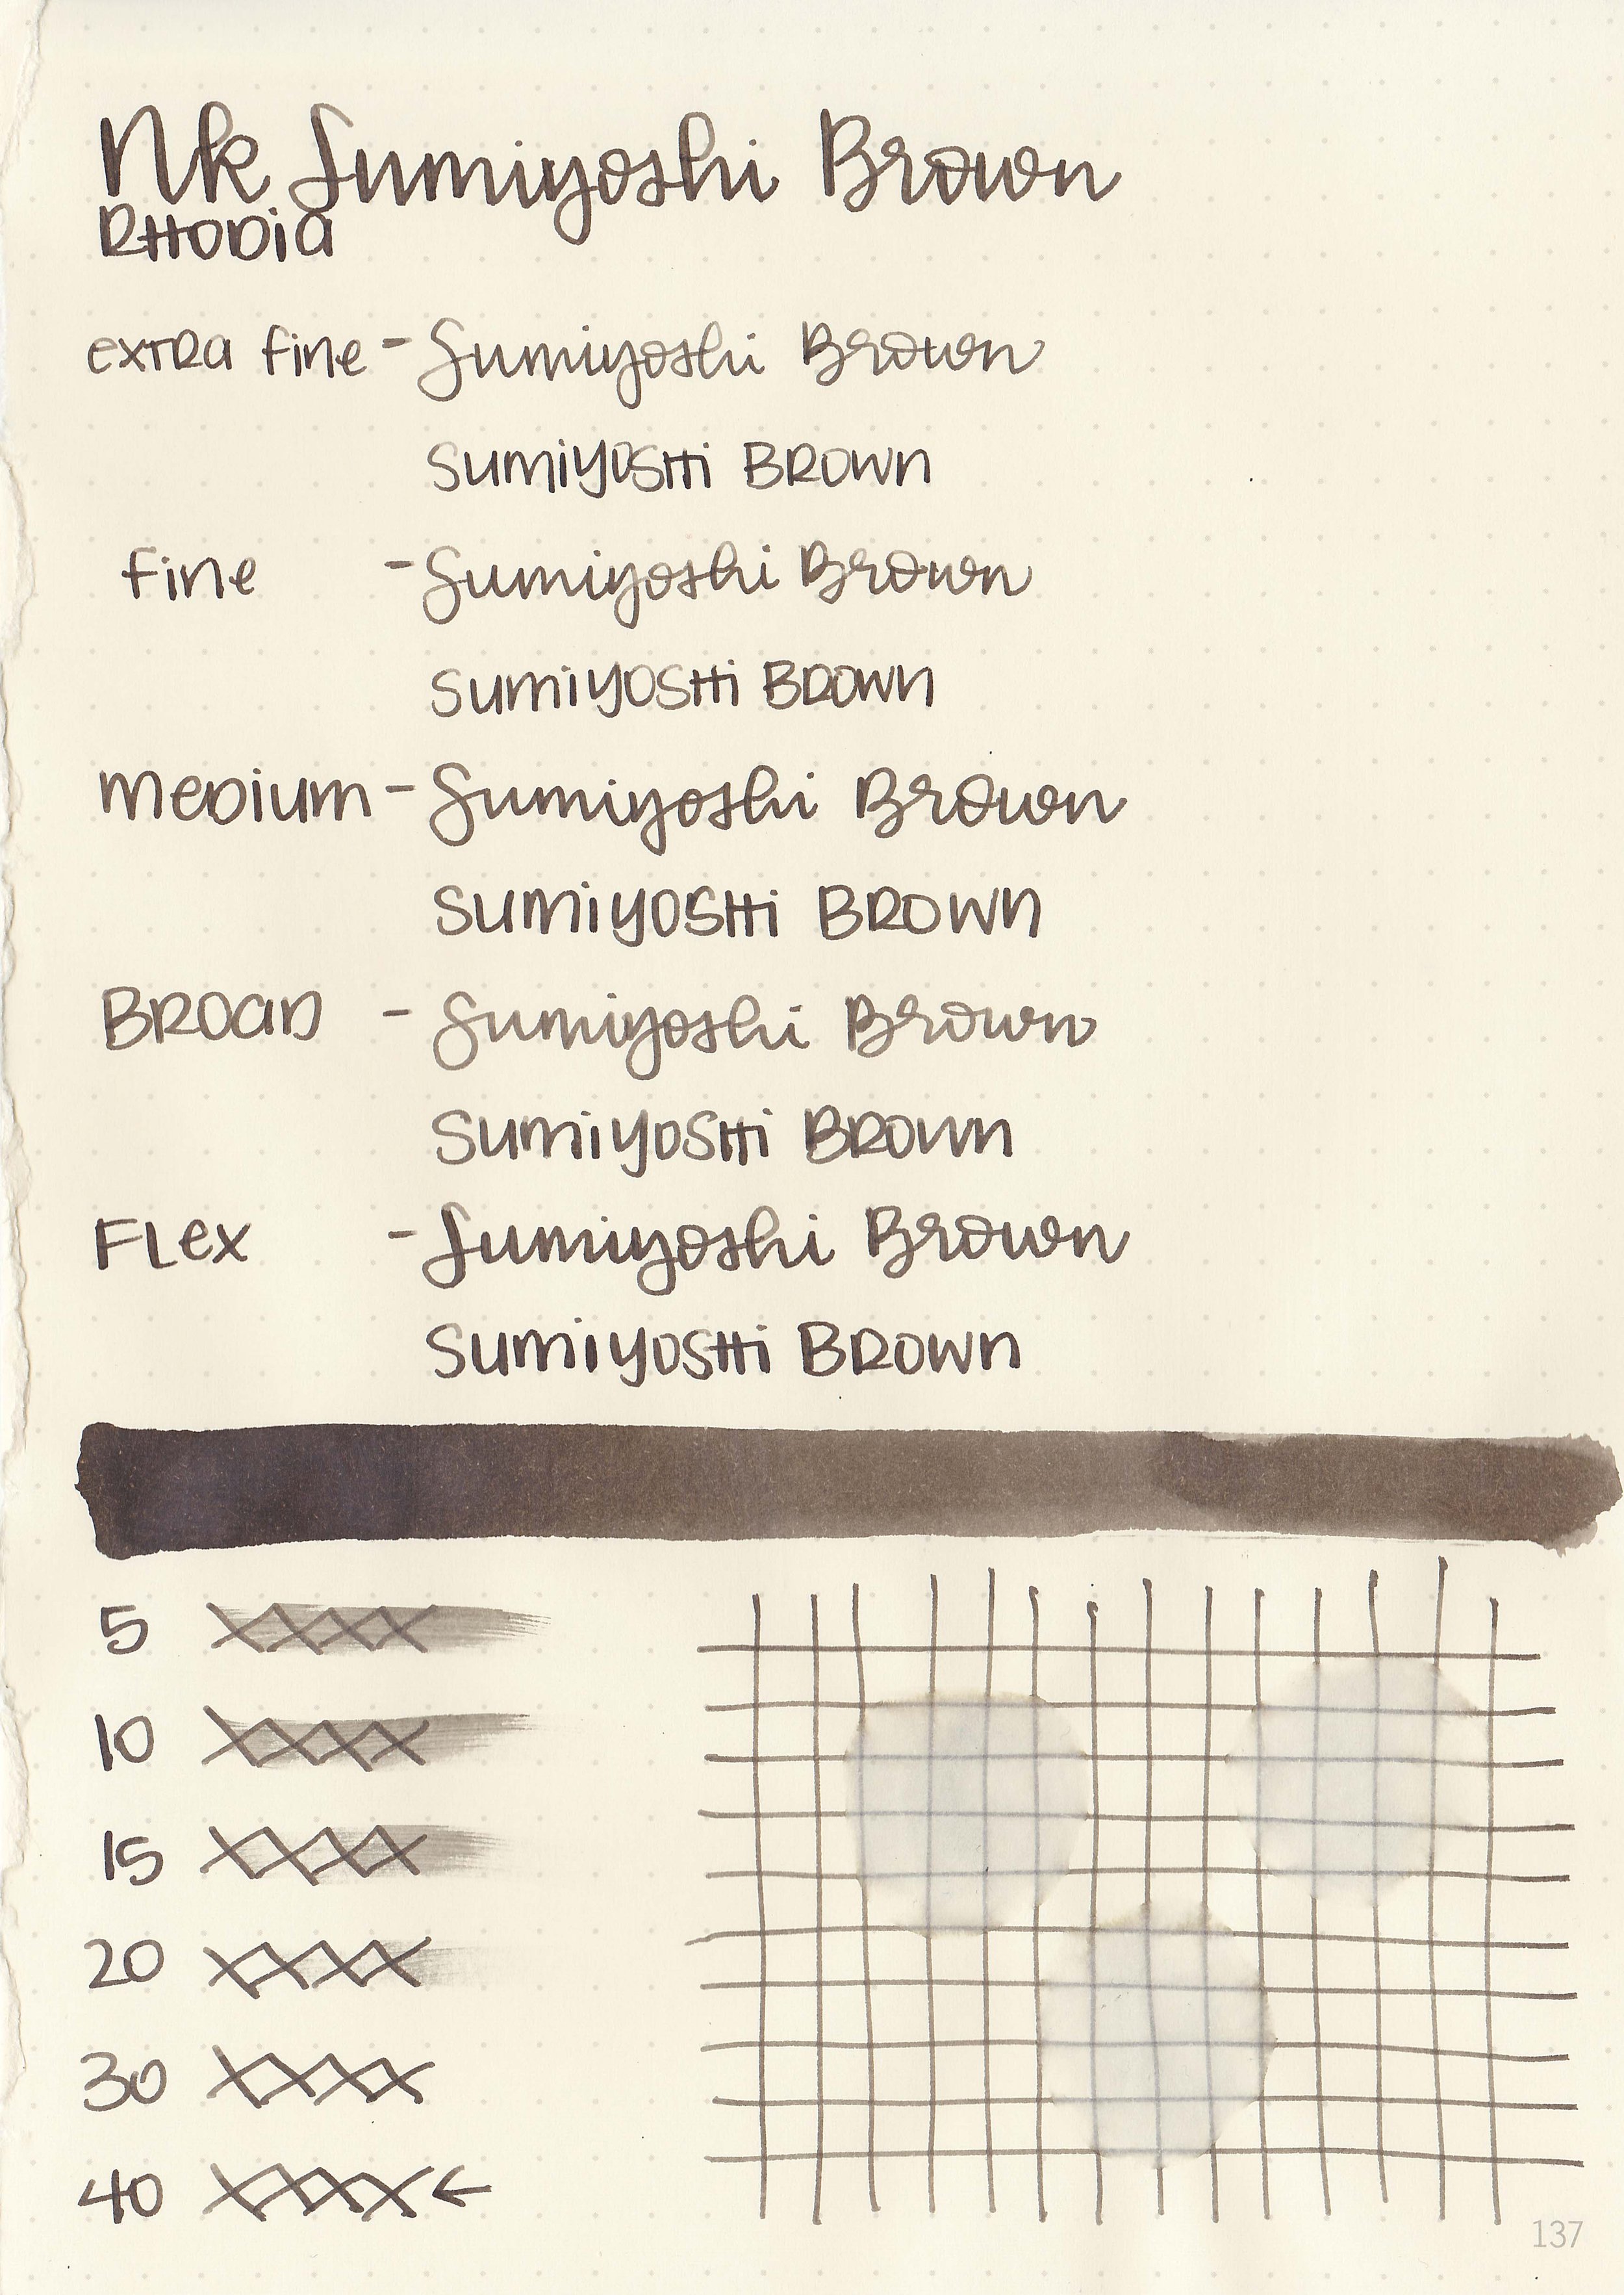 Nk Sumiyoshi Brown
RHODia
exTRa fine - Sumiyoshi Brown
SumiyOSHi BROWn
fine - Sumiyoshi Brown
SumiyOSHi BROWn
meDium - Sumiyoshi Brown
SumiyOSHi BROWn
BROaD - Sumiyoshi Brown
SumiyOSHi BROWn
FLex - Sumiyoshi Brown
SumiyOSHi BROWn
5 XXXX
10 XXXX
15 XXXX
20 XXXX
30 XXXX
40 XXXX ←
137